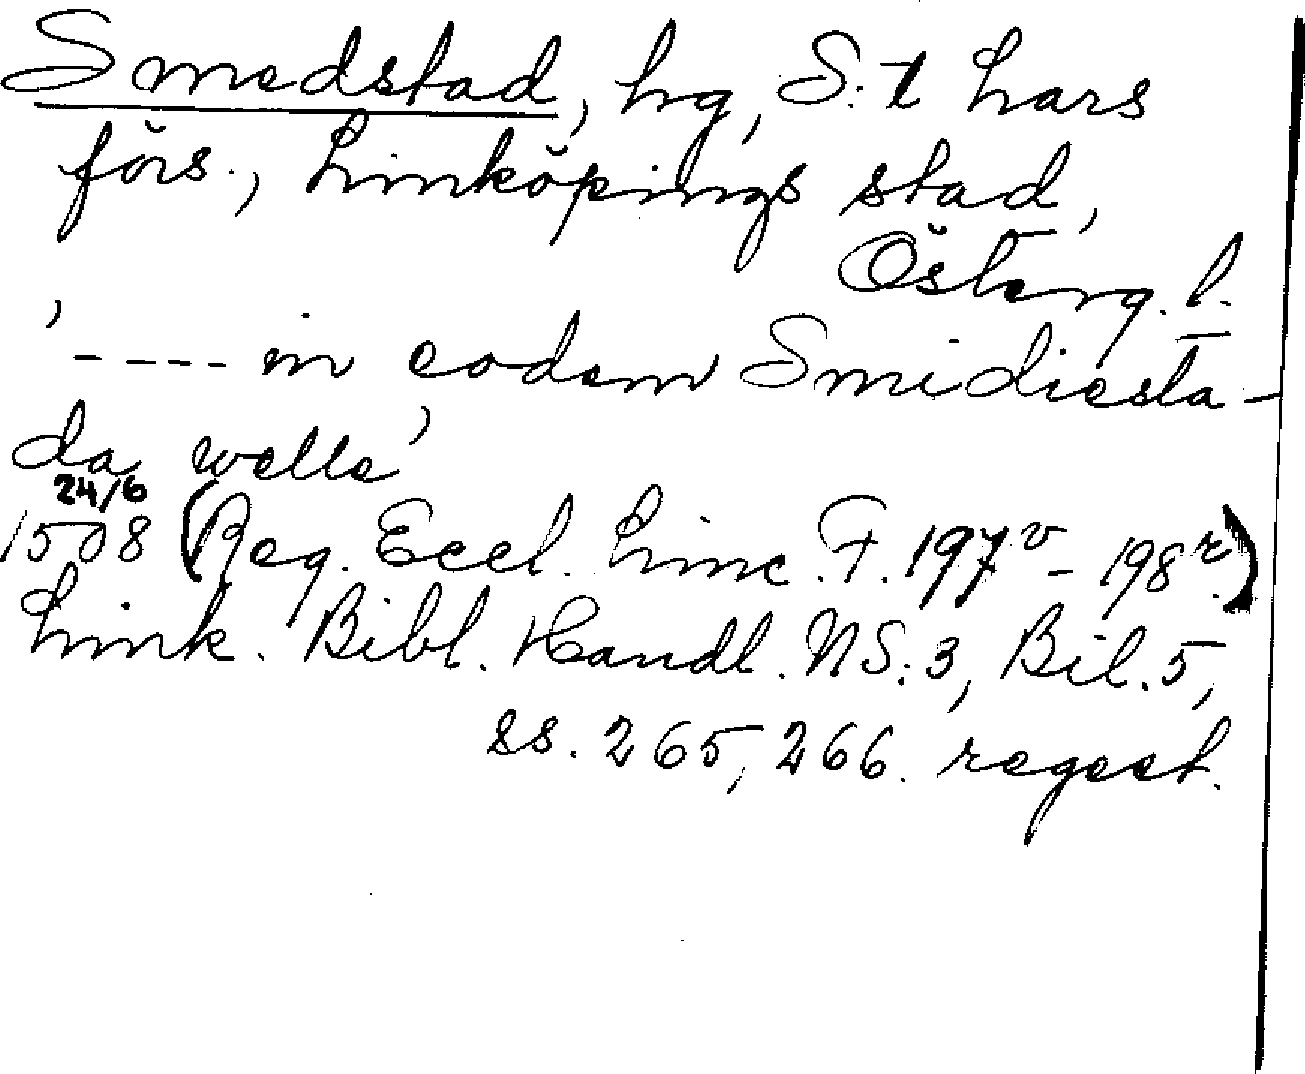 Smedstad, hg, S:t Lars
förs., Linköpings stad,
Österg. l.
'---- in eodem Smidiesta-
da welle'
24/6
1508 (Reg. Eccl. Linc. F. 197v - 198r)
Link. Bibl. Handl. NS: 3, Bil. 5,
ss. 265, 266. regest.